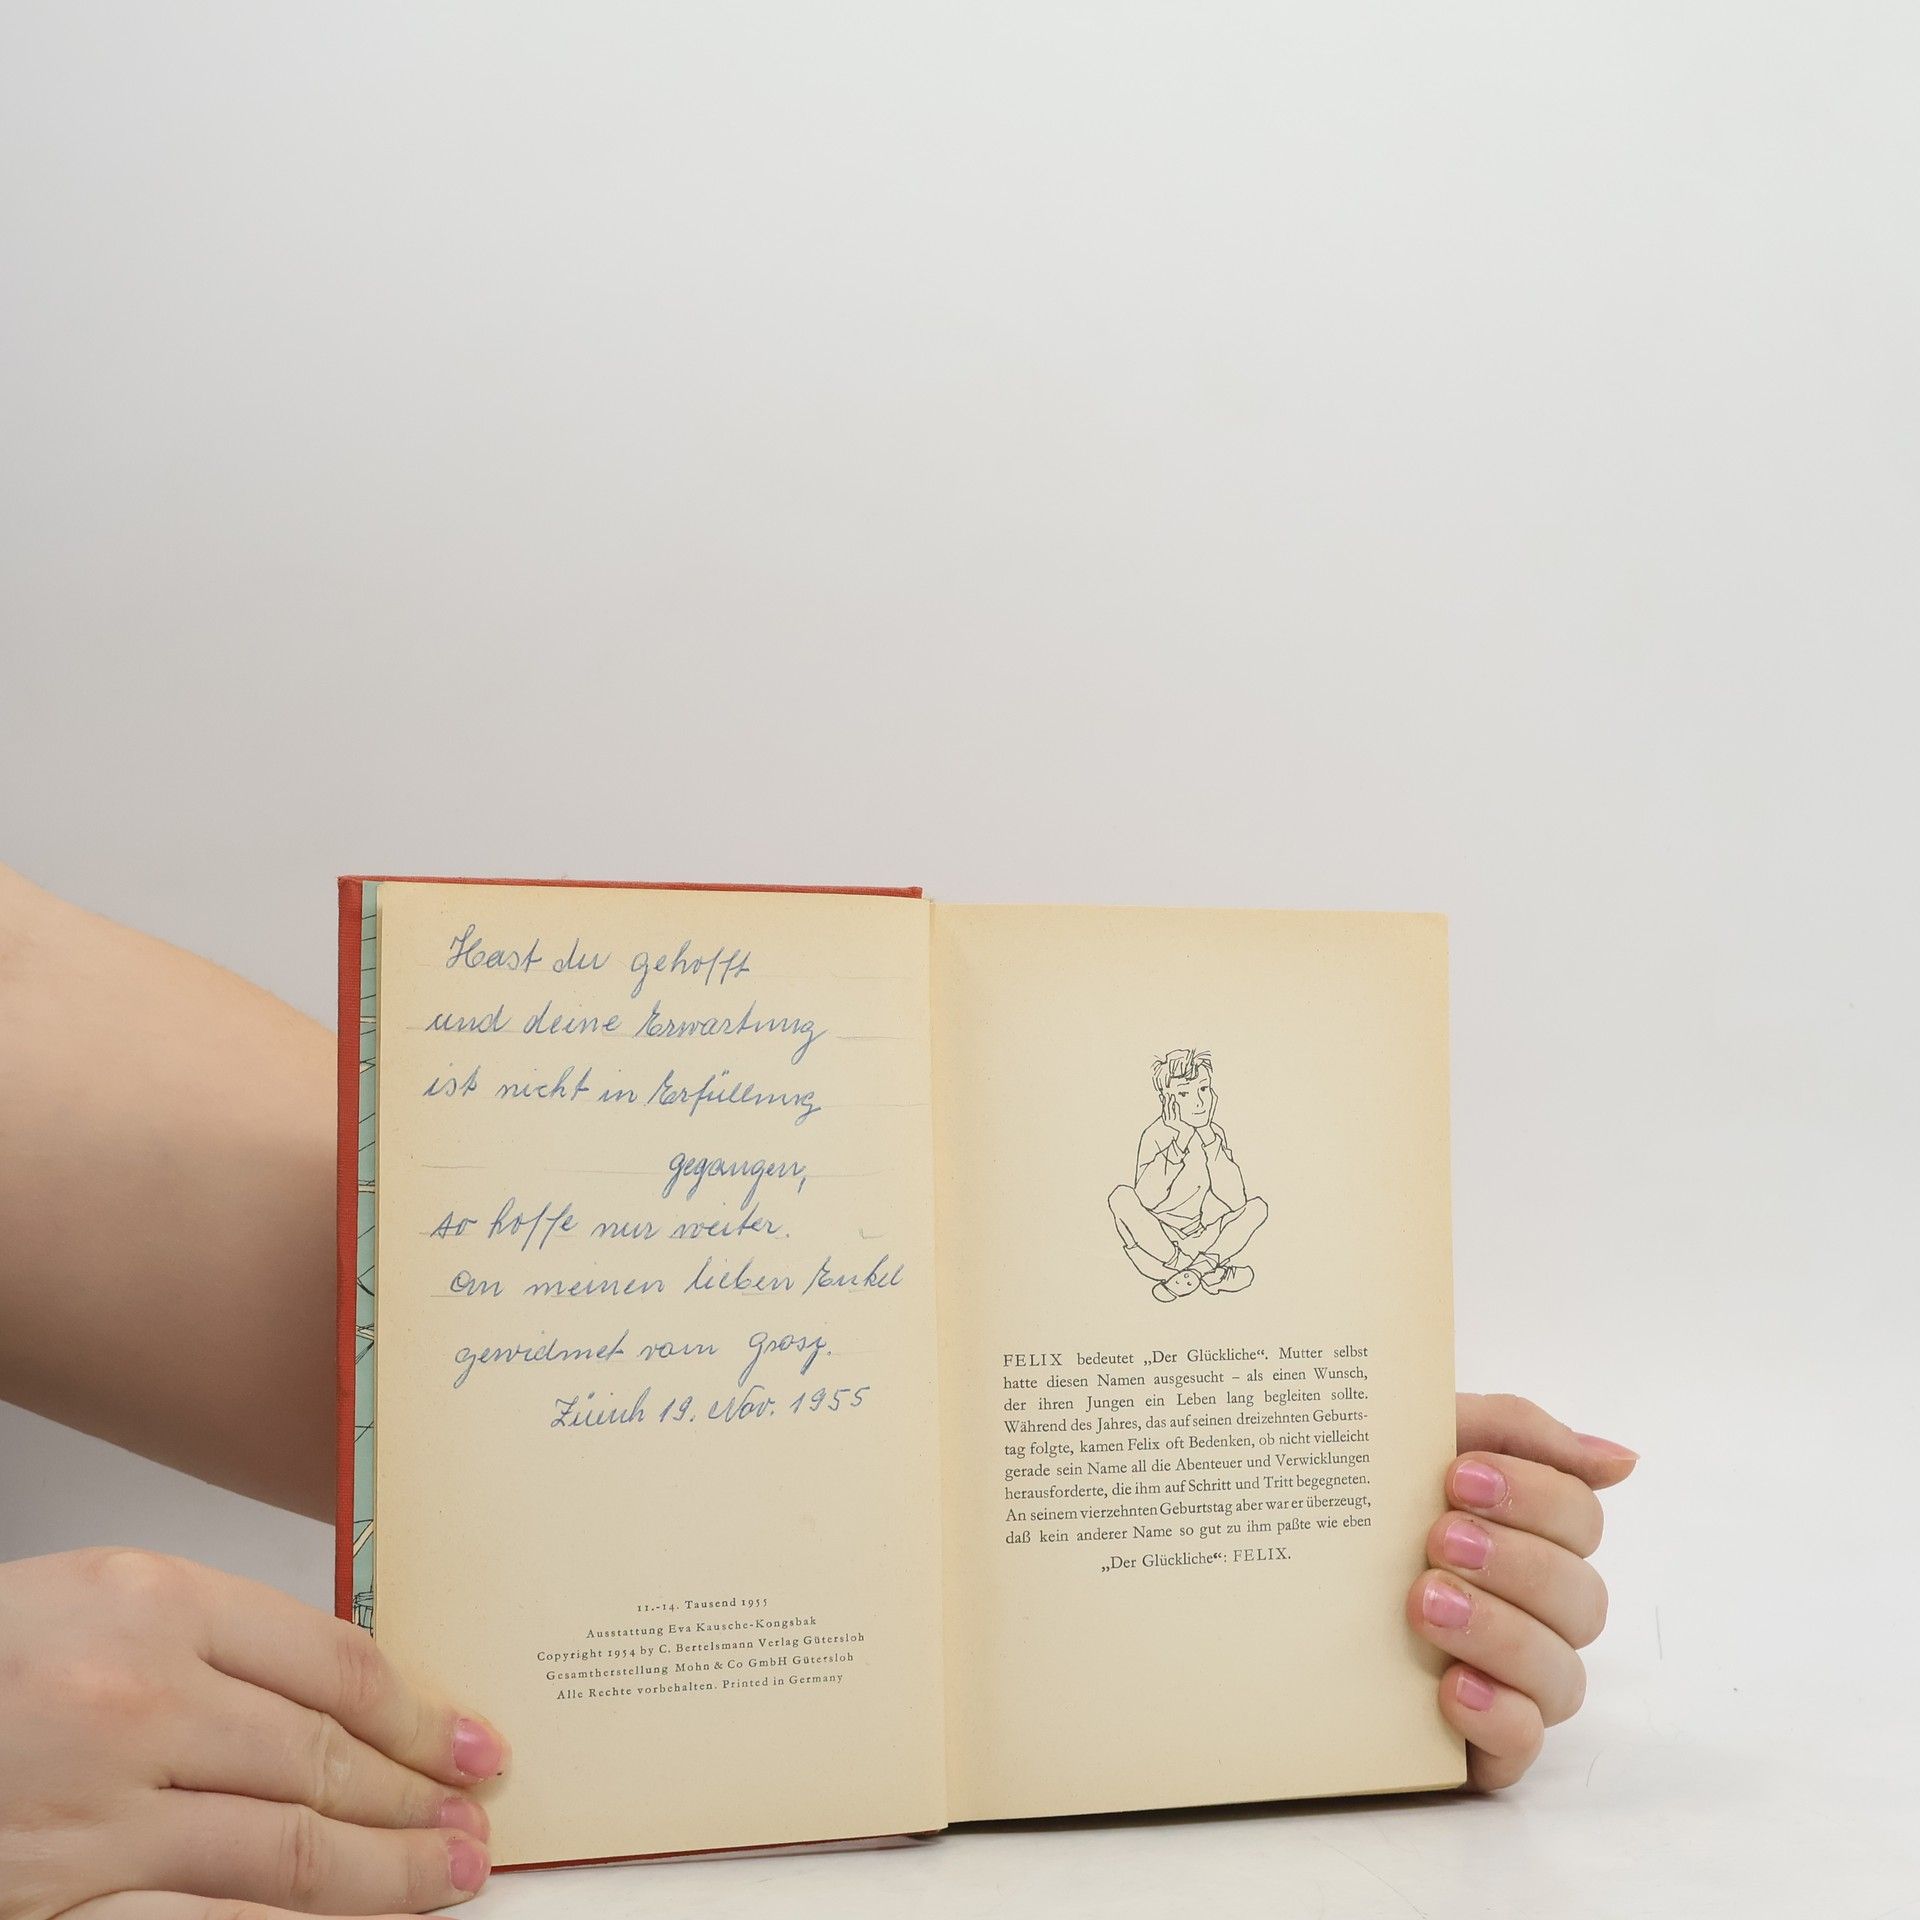 Hast du gehofft
und deine Erwartung
ist nicht in Erfüllung
gegangen,
so hoffe nur weiter.
An meinen lieben Enkel
gewidmet vom
Zürich 19. Nov. 1955
11.-14. Tausend 1955
Ausstattung Eva Kausche-Kongsbak
Copyright 1954 by C. Bertelsmann Verlag Gütersloh
Gesamtherstellung Mohn & Co GmbH Gütersloh
Alle Rechte vorbehalten. Printed in Germany
FELIX bedeutet „Der Glückliche“. Mutter selbst
hatte diesen Namen ausgesucht – als einen Wunsch,
der ihren Jungen ein Leben lang begleiten sollte.
Während des Jahres, das auf seinen dreizehnten Geburts-
tag folgte, kamen Felix oft Bedenken, ob nicht vielleicht
gerade sein Name all die Abenteuer und Verwicklungen
herausforderte, die ihm auf Schritt und Tritt begegneten.
An seinem vierzehnten Geburtstag aber war er überzeugt,
daß kein anderer Name so gut zu ihm paßte wie eben
„Der Glückliche“: FELIX.